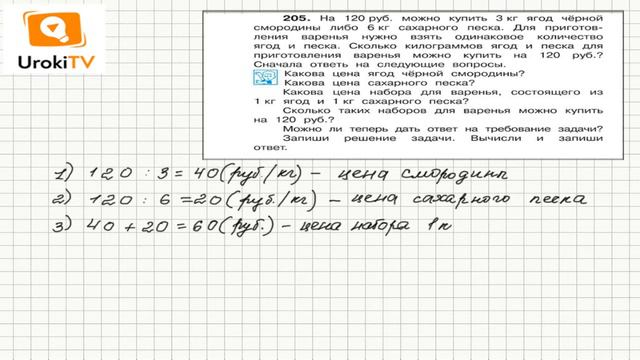 UrokiTV
205. На 120 руб. можно купить 3 кг ягод чёрной
смородины либо 6 кг сахарного песка. Для приготов-
ления варенья нужно взять одинаковое количество
ягод и песка. Сколько килограммов ягод и песка для
приготовления варенья можно купить на 120 руб.?
Сначала ответь на следующие вопросы.
Какова цена ягод чёрной смородины?
Какова цена сахарного песка?
Какова цена набора для варенья, состоящего из
1 кг ягод и 1 кг сахарного песка?
Сколько таких наборов для варенья можно купить
на 120 руб.?
Можно ли теперь дать ответ на требование задачи?
Запиши решение задачи. Вычисли и запиши
ответ.
1) 120 : 3 = 40 (руб./кг) – цена смородины
2) 120 : 6 = 20 (руб./кг) – цена сахарного песка
3) 40 + 20 = 60 (руб.) – цена набора 1 к